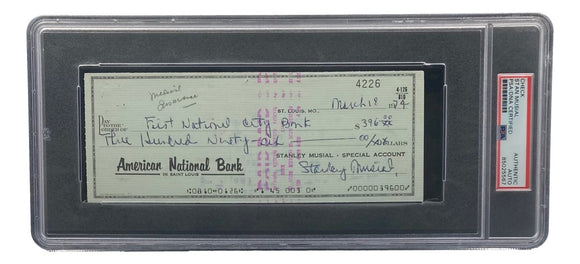 4226
4-126
810
Medical
Insurance
ST. LOUIS, MO.
March 18 1974
PAY TO THE
ORDER OF First National City Bank $396 00
Three Hundred Ninety-six 00/100 DOLLARS
STANLEY MUSIAL - SPECIAL ACCOUNT
American National Bank
IN SAINT LOUIS
Stanley Musial
⑆0810⑉0126⑆ 45 003 0⑈ ⑈0000039600⑈
CHECK
STAN MUSIAL
PSA/DNA CERTIFIED
AUTHENTIC
AUTO
85025567